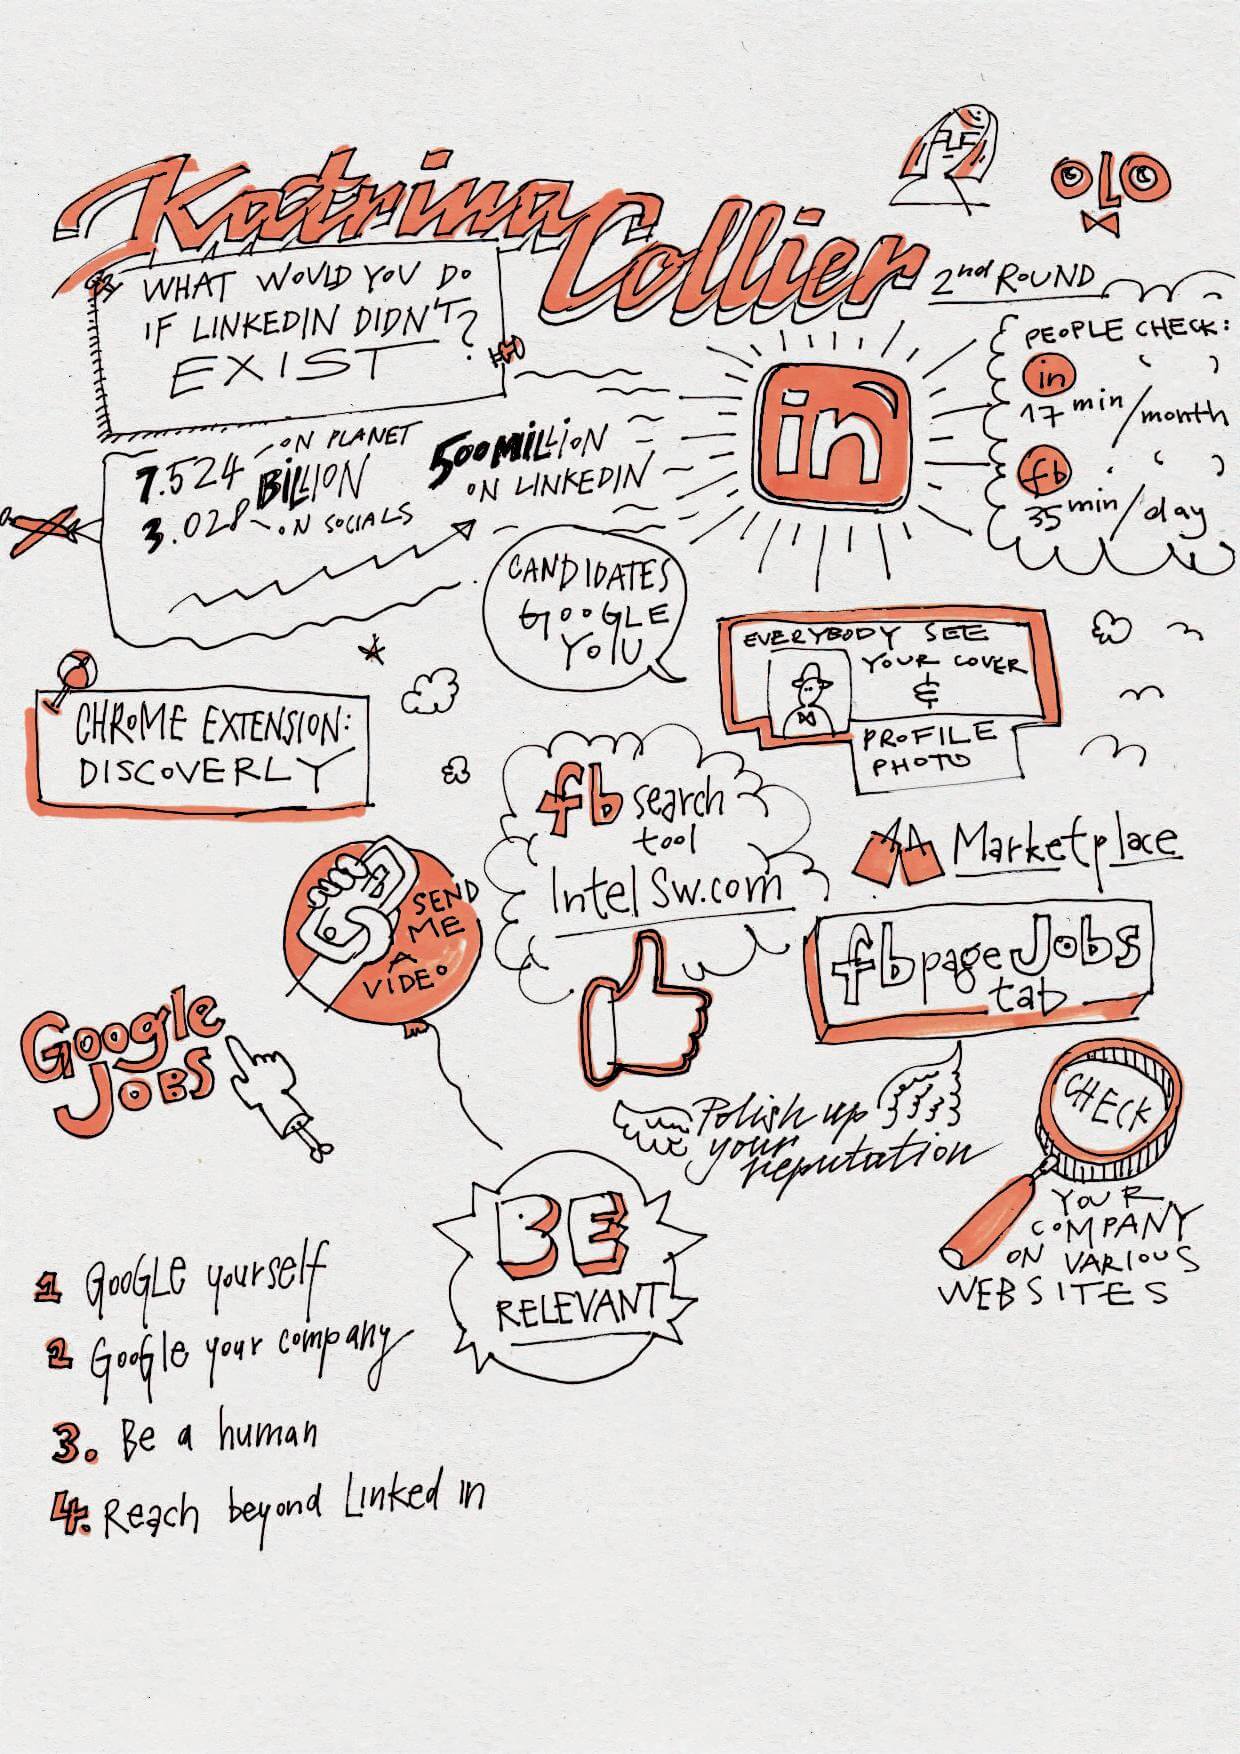 Katrina
Collier
OLO
2nd ROUND
WHAT WOULD YOU DO
IF LINKEDIN DIDN'T
EXIST?
in
PEOPLE CHECK:
in
17 min/month
fb
35 min/day
7.524 BILLION ON PLANET
3.028 ON SOCIALS
500 MILLION
ON LINKEDIN
CANDIDATES
GOOGLE
YOU
EVERYBODY SEE
YOUR COVER
&
PROFILE
PHOTO
CHROME EXTENSION:
DISCOVERLY
fb search
tool
IntelSw.com
Marketplace
SEND
ME
A
VIDEO
fb page Jobs
tab
Google
JOBS
Polish up
your
reputation
CHECK
YOUR
COMPANY
ON VARIOUS
WEBSITES
BE
RELEVANT
1 GOOGLE yourself
2 Google your company
3. Be a human
4. Reach beyond Linked in